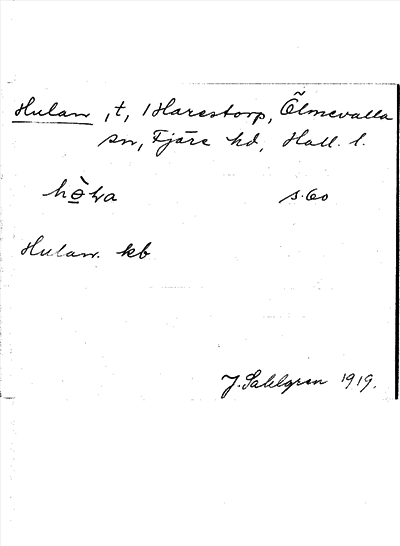 Hulan, t, Harestorp, Ölmevalla
sn, Fjäre hd, Hall. l.
s. 60
Hulan. kb
J. Sahlgren 1919.